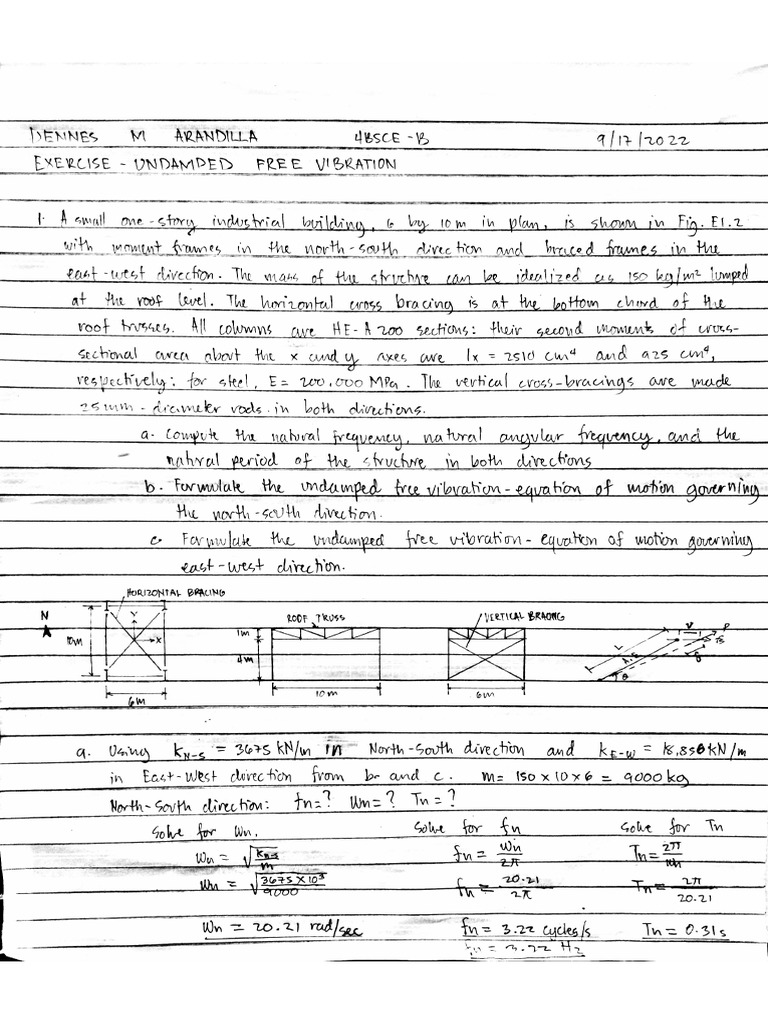 DENNES M ARANDILLA 4BSCE-B 9/17/2022
EXERCISE - UNDAMPED FREE VIBRATION
1. A small one-story industrial building, 6 by 10m in plan, is shown in Fig. E1.2
with moment frames in the north-south direction and braced frames in the
east-west direction. The mass of the structure can be idealized as 150 kg/m² lumped
at the roof level. The horizontal cross bracing is at the bottom chord of the
roof trusses. All columns are HE-A 200 sections: their second moments of cross-
sectional area about the x and y axes are Ix = 2510 cm⁴ and 925 cm⁴,
respectively: for steel, E = 200,000 MPa. The vertical cross-bracings are made
25mm-diameter rods in both directions.
a. Compute the natural frequency, natural angular frequency, and the
natural period of the structure in both directions
b. Formulate the undamped free vibration-equation of motion governing
the north-south direction.
c. Formulate the undamped free vibration-equation of motion governing
east-west direction.
HORIZONTAL BRACING
N ROOF TRUSS VERTICAL BRACING
Y X 10m 6m
1m 4m 10m 6m
L A,E θ V P δ
a. Using k_N-S = 3675 kN/m in North-South direction and k_E-W = 18,858 kN/m
in East-West direction from b and c. m = 150 × 10 × 6 = 9000 kg
North-South direction: fn = ? Wn = ? Tn = ?
Solve for Wn. Solve for fn Solve for Tn
Wn = √(k_N-S / m) fn = Wn / 2π Tn = 2π / Wn
Wn = √(3675 × 10³ / 9000) fn = 20.21 / 2π Tn = 2π / 20.21
Wn = 20.21 rad/sec fn = 3.22 cycles/s Tn = 0.31 s
fn = 3.22 Hz